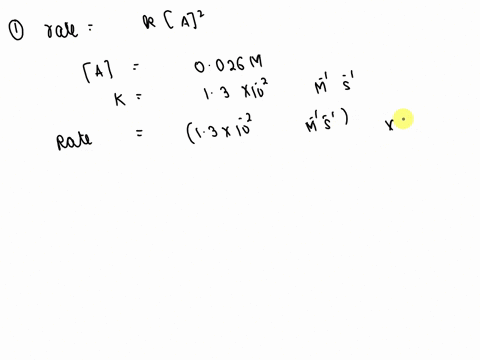 ① rate = k [A]²
[A] = 0.026 M
K = 1.3 × 10⁻² M⁻¹ s⁻¹
Rate = (1.3 × 10⁻² M⁻¹ s⁻¹) ×